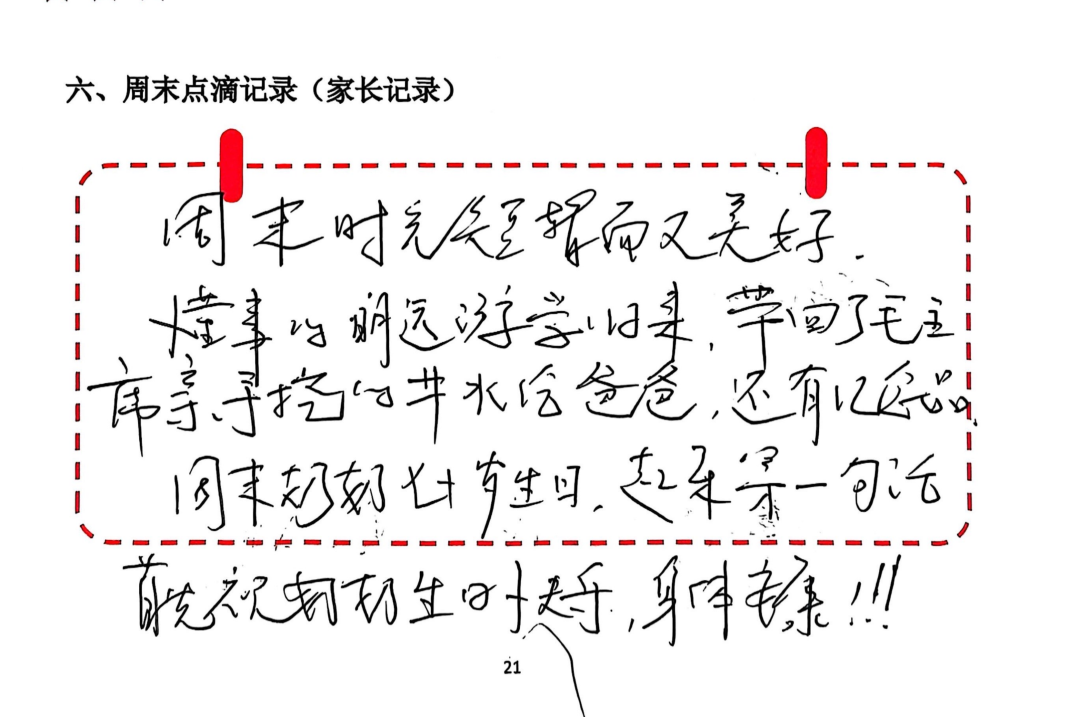 六、周末点滴记录（家长记录）
周末时光短暂而又美好.
懂事的明远游学归来,带回了毛主
席亲手挖的井水给爸爸,还有纪念品.
周末奶奶七十岁生日,起来第一句话
首先祝奶奶生日快乐,身体健康!!!
21